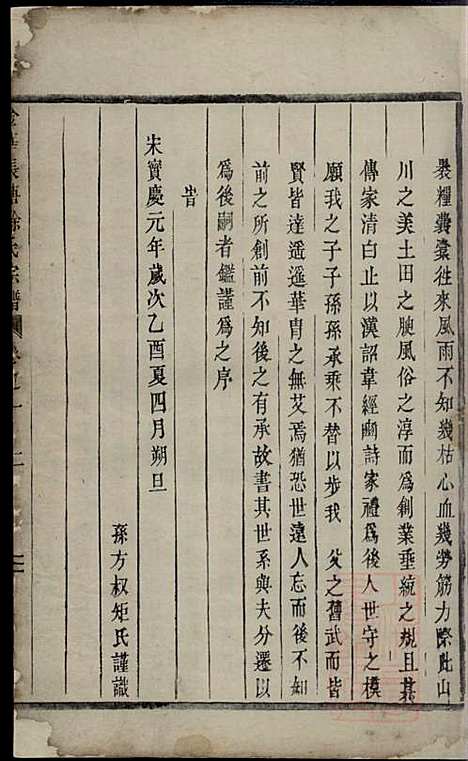 裹糧囊橐往來風雨不知幾枯心血幾勞筋力際此山
川之美土田之腴風俗之淳而為創業垂統之規且其
傳家清白止以漢詔韋經關詩家禮為後人世守之模
願我之子子孫孫承乘不替以步我 父之舊武而皆
賢皆達遥遥華胄之無艾焉猶恐世遠人忘而後不如
前之所創前不知後之有承故書其世系與夫分遷以
為後嗣者鑑謹為之序
旹
宋寶慶元年歲次乙酉夏四月朔旦
孫方权矩氏謹識
徐氏宗譜 卷之一 二